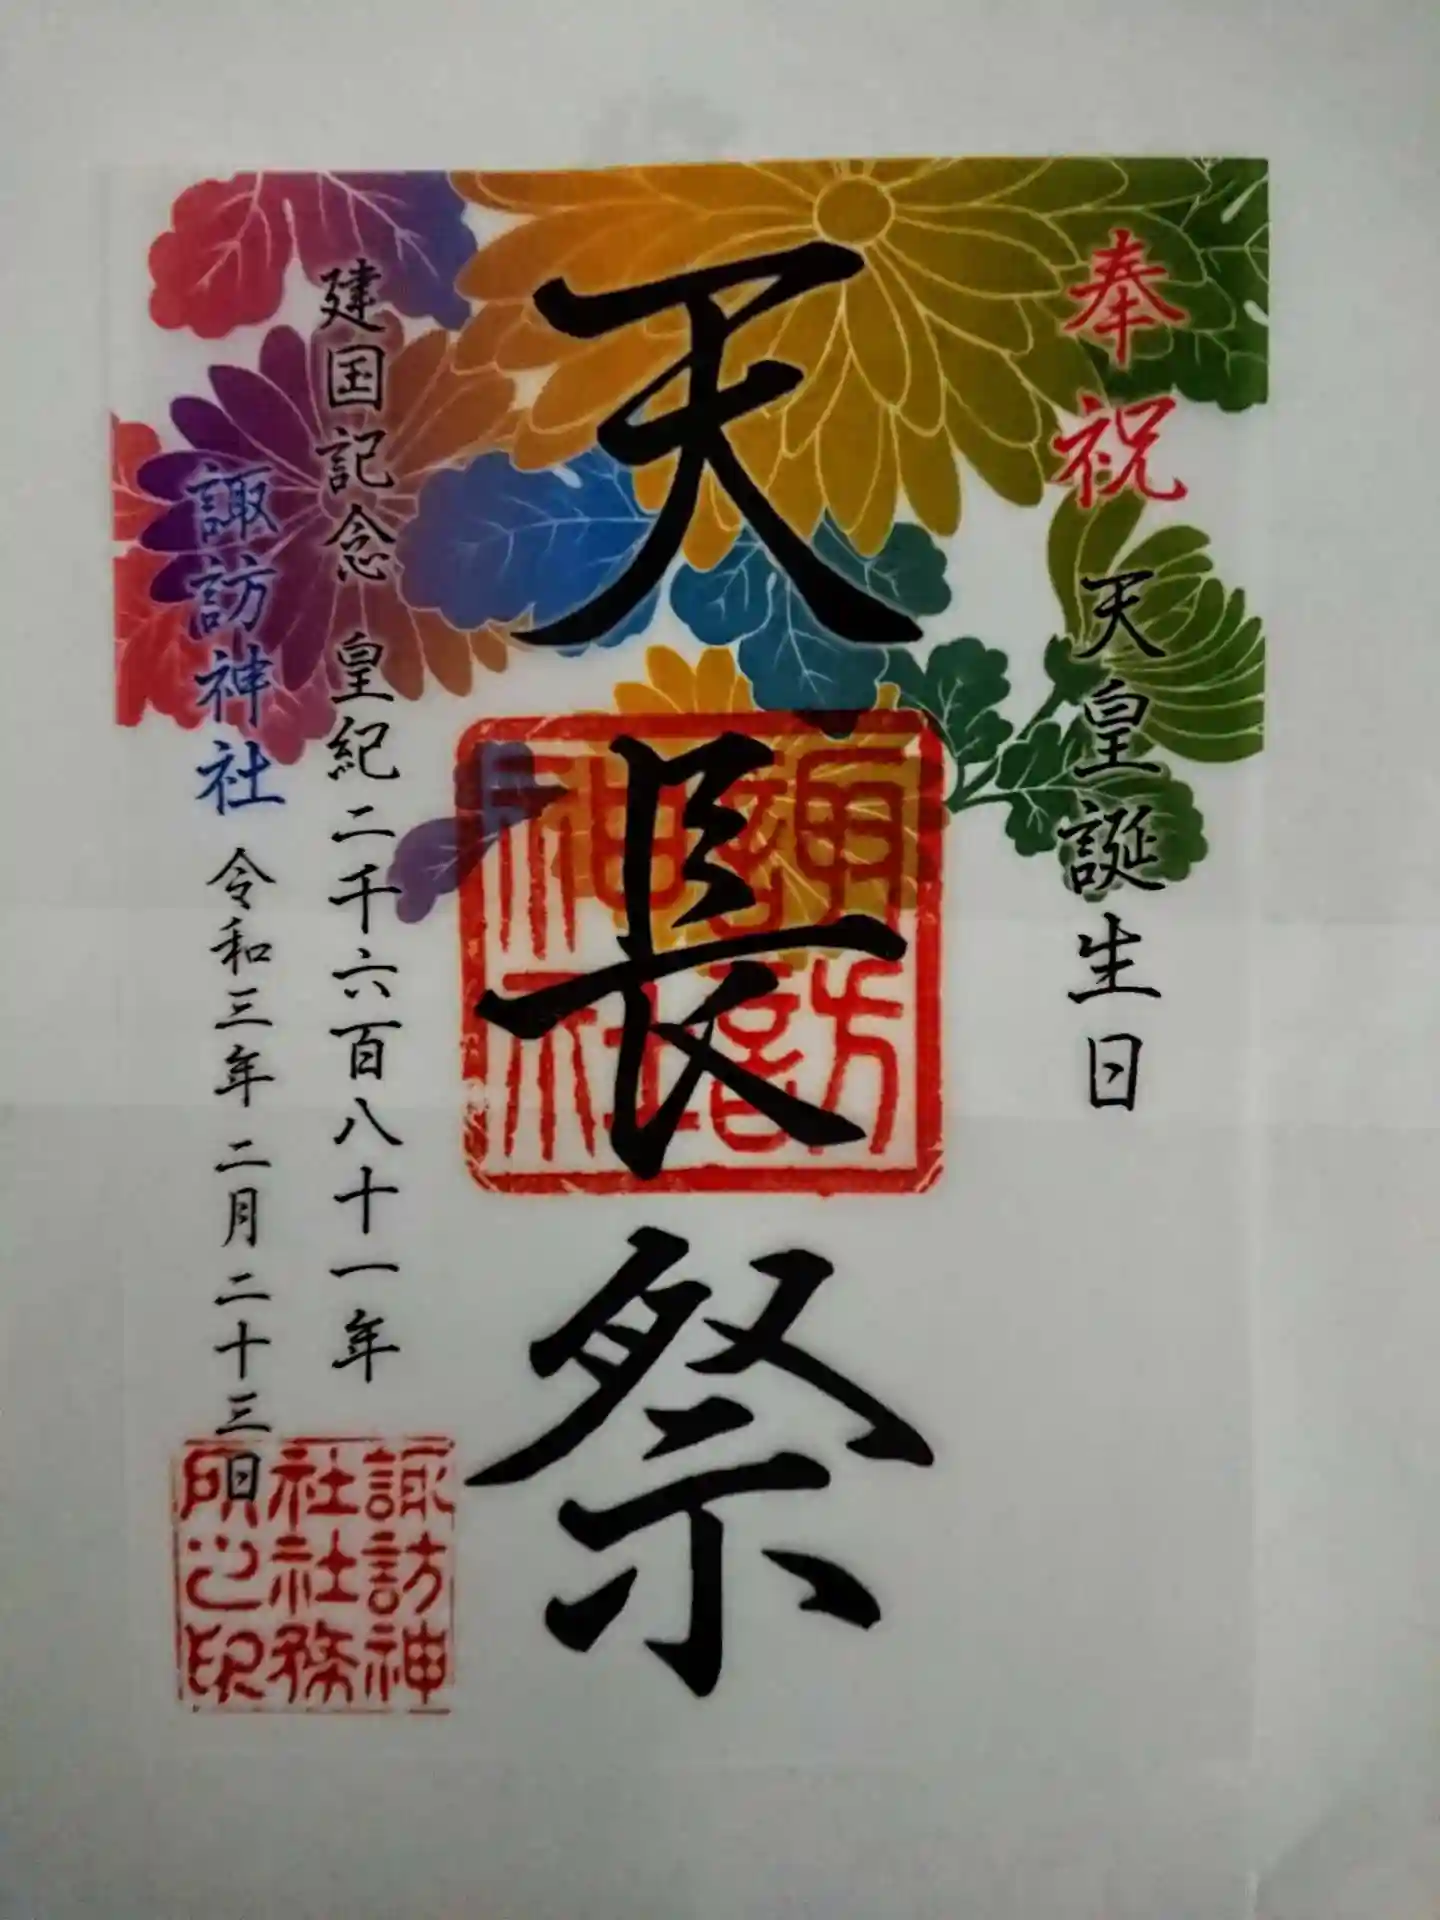 奉祝
天皇誕生日
天長祭
諏訪神社
建国記念 皇紀二千六百八十一年
諏訪神社 令和三年二月二十三日
諏訪神社社務所之印